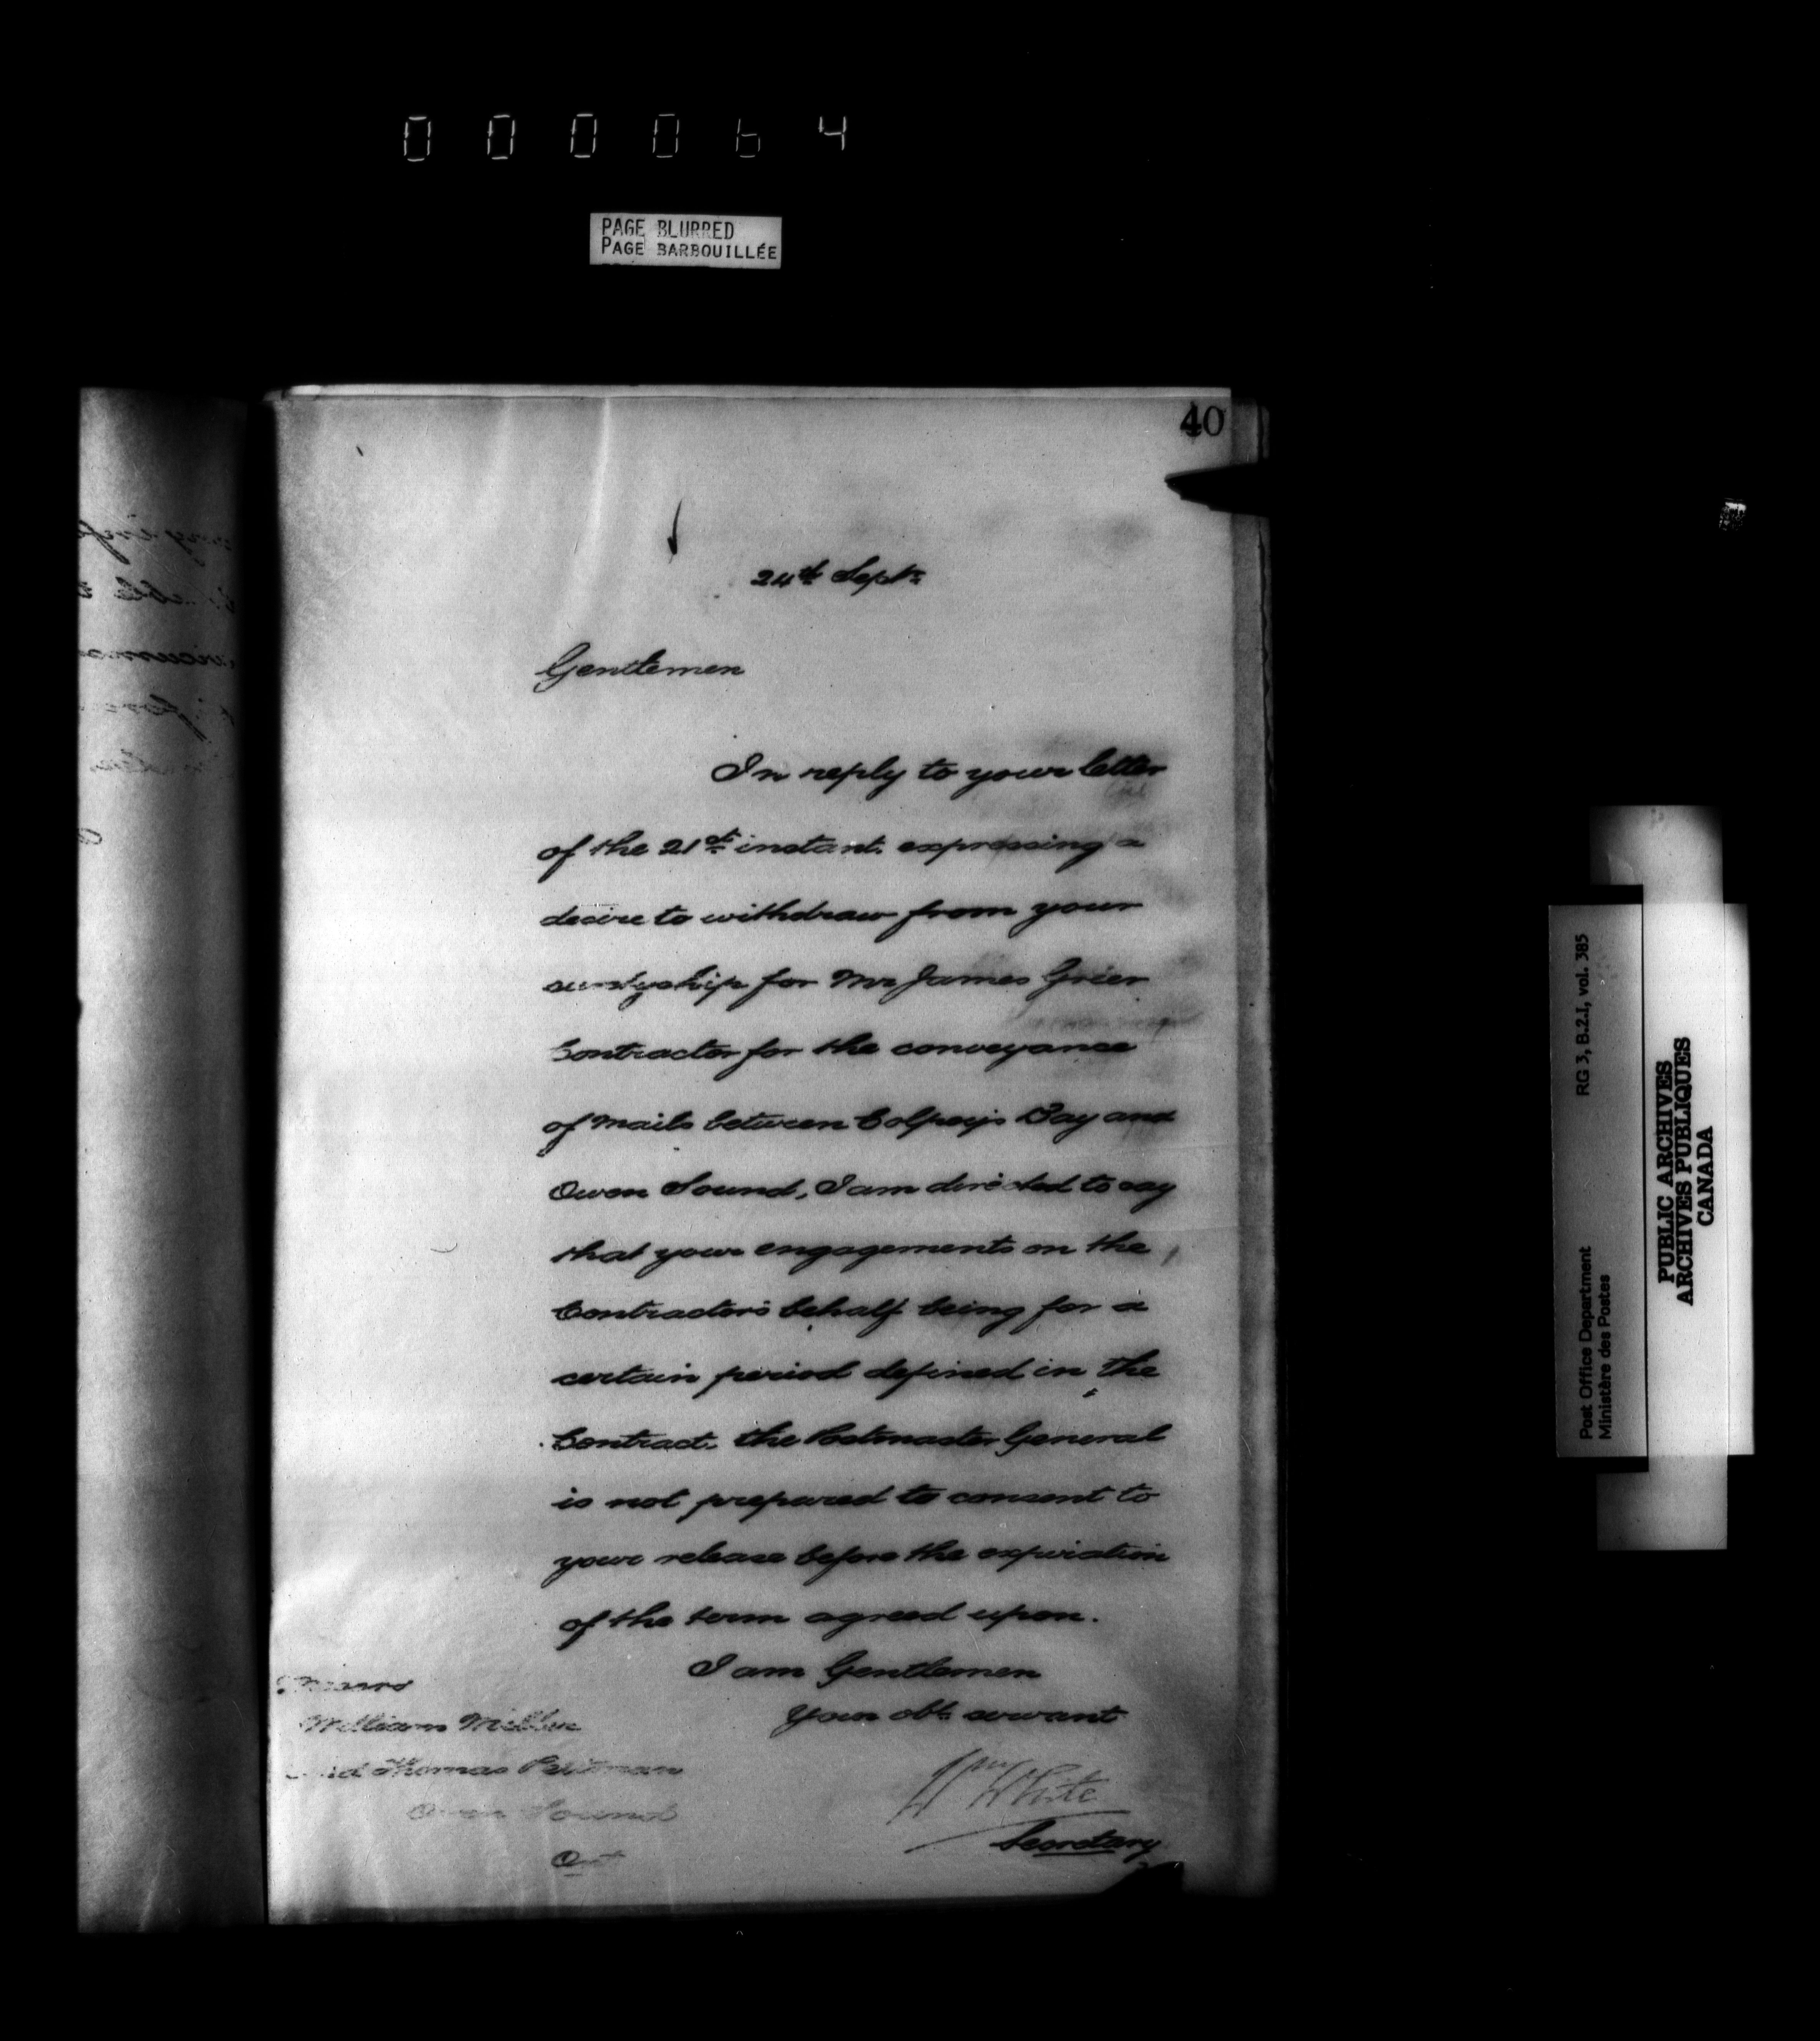 000064
PAGE BLURRED
PAGE BARBOUILLÉE
40
24th Sept.
Gentlemen
In reply to your letter
of the 21st instant. expressing a
desire to withdraw from your
suretyship for Mr James Grier
Contractor for the conveyance
of Mails between Colpoys Bay and
Owen Sound, I am directed to say
that your engagements on the
Contractor's behalf being for a
certain period defined in the
Contract. the Postmaster General
is not prepared to consent to
your release before the expiration
of the term agreed upon.
I am Gentlemen
Your obt. servant
Wm White
Secretary
Messrs
William Miller
and Thomas Pittman
Owen Sound
Ont
RG 3, B.2.I, vol. 385
Post Office Department
Ministère des Postes
PUBLIC ARCHIVES
ARCHIVES PUBLIQUES
CANADA